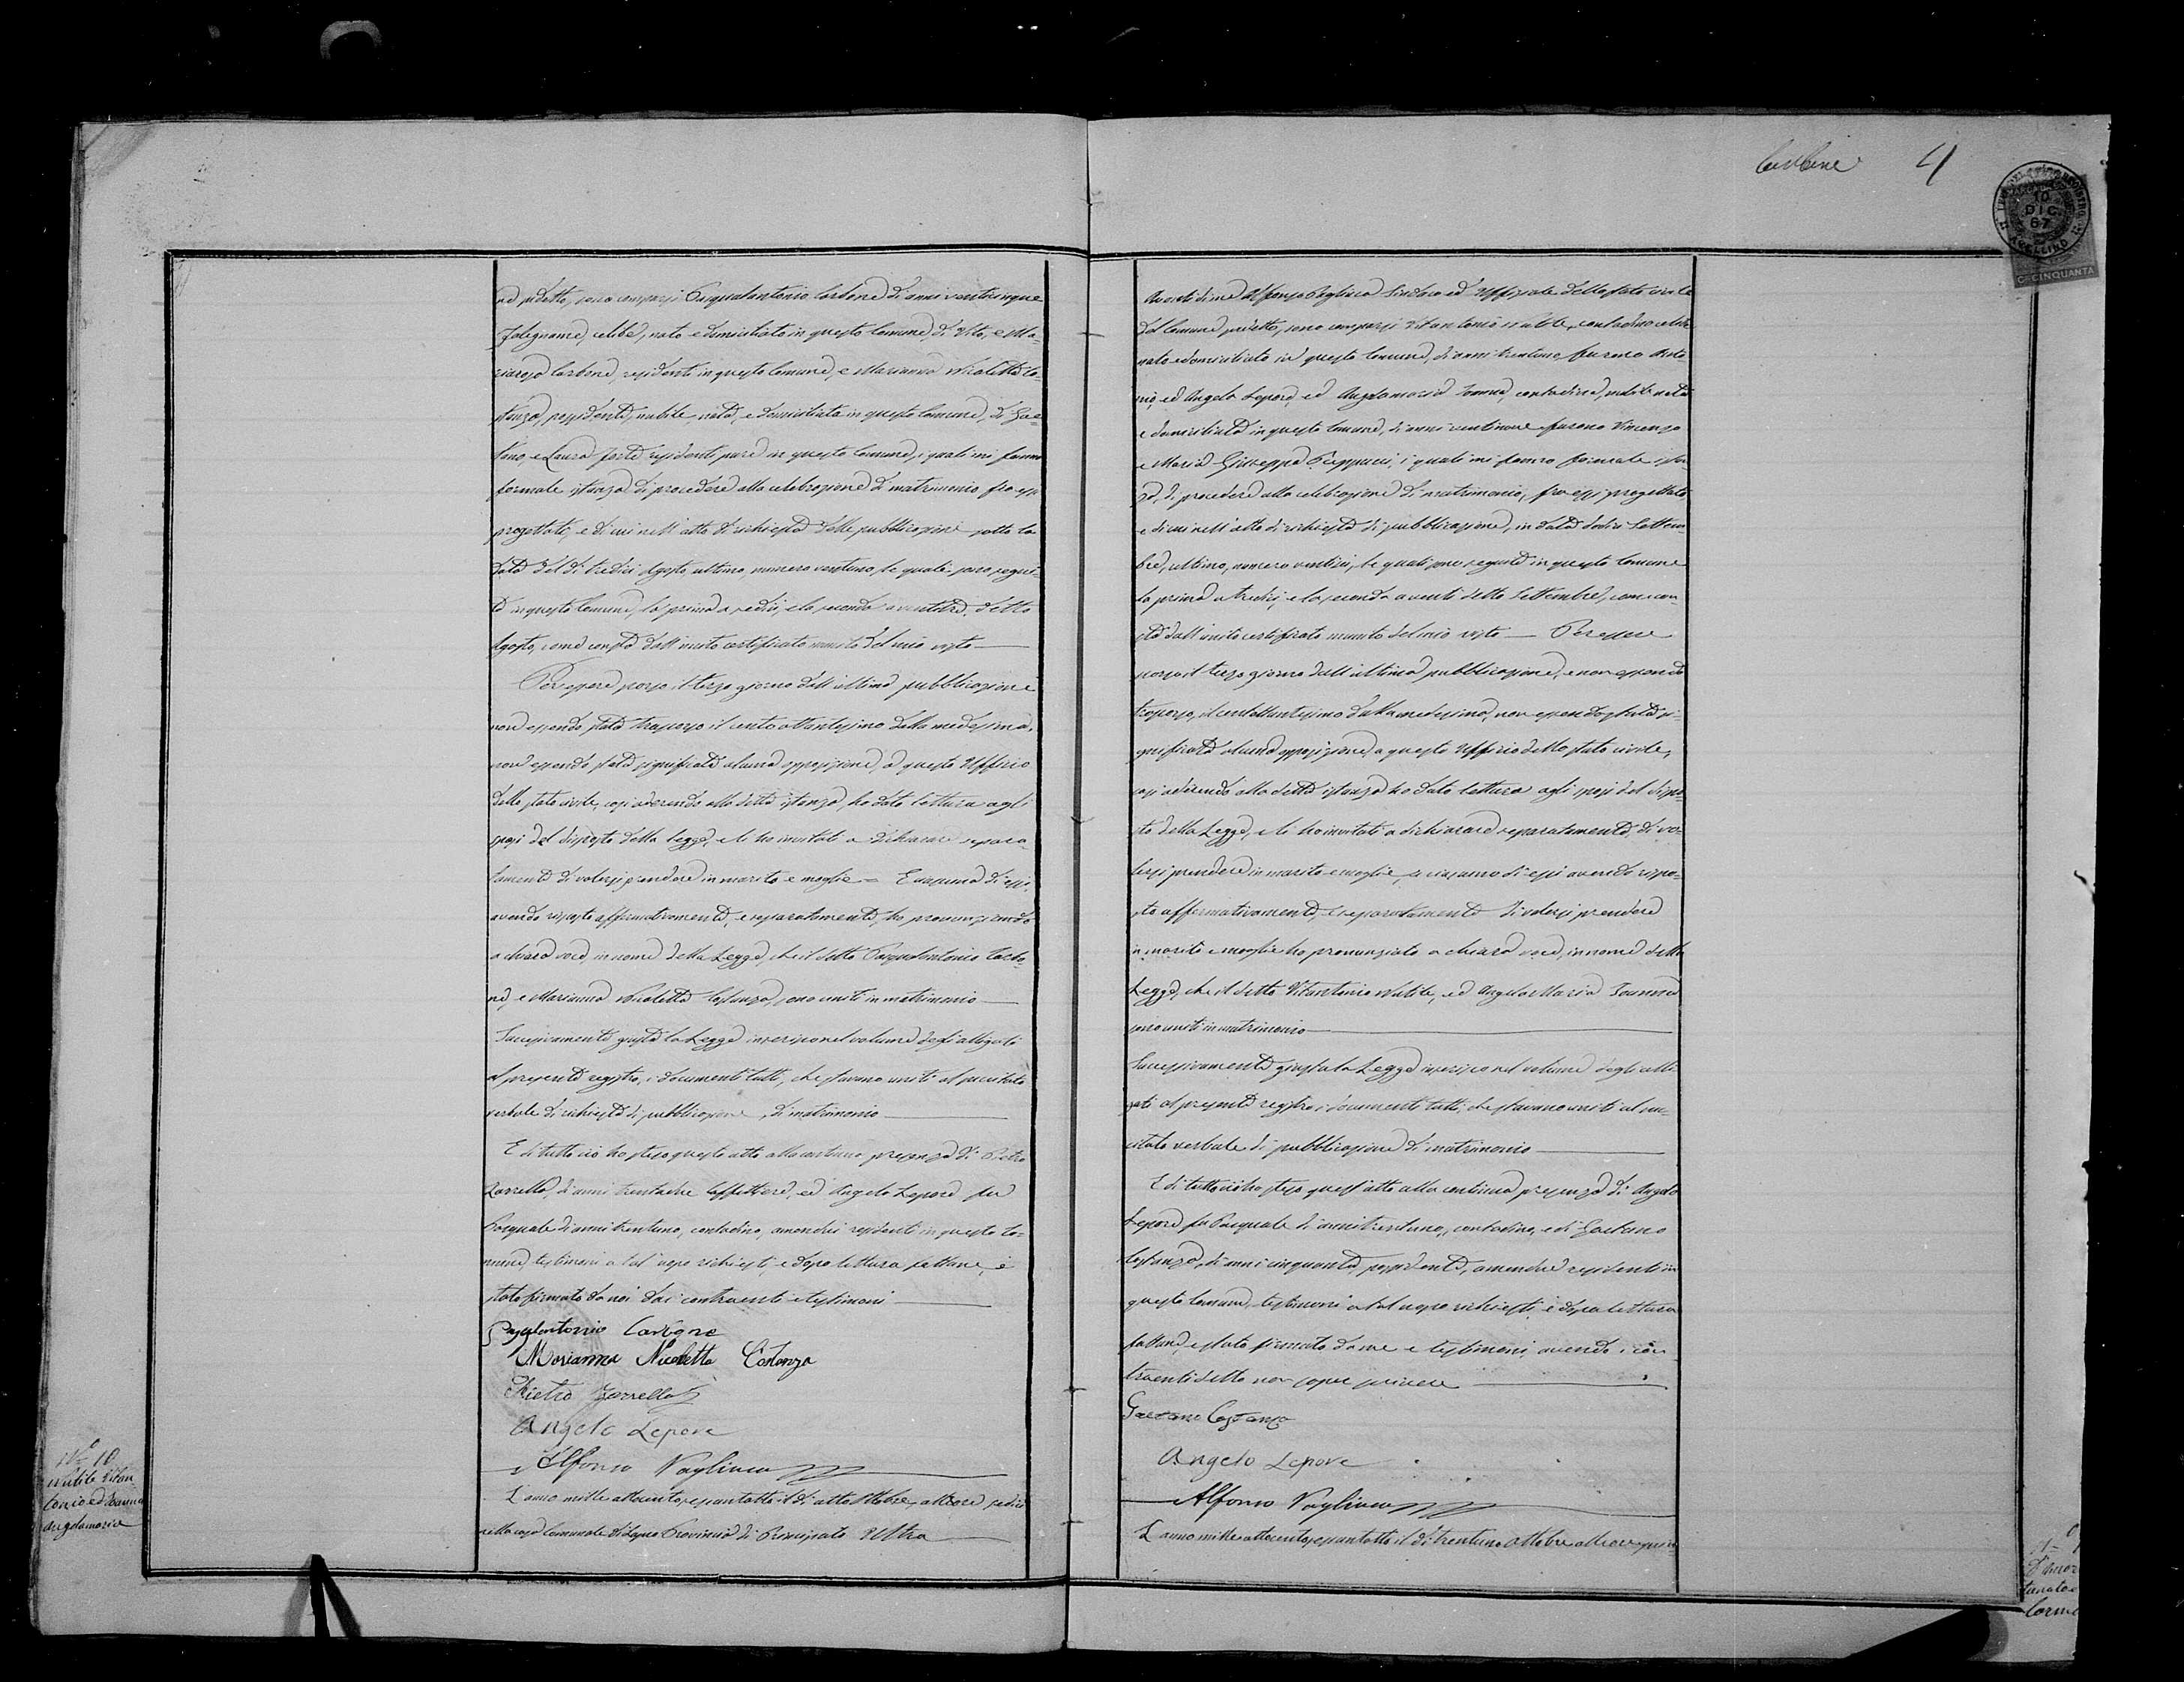 nel predetto, sono comparsi Pasqualantonio Carbone di anni venticinque
Falegname, celibe, nato e domiciliato in questo Comune, di Vito, e Ma-
Carbone, residenti in questo Comune, e Marianna Nicoletta Co-
stanza, possidente, nubile, nata, e domiciliata in questo Comune, di Gae-
tano, e Laura Forte residenti pure in questo Comune, i quali mi fanno
formale istanza di procedere alla celebrazione di matrimonio fra essi
progettato, e di cui nell'atto di richiesta delle pubblicazioni sotto la
data del dì tredici Agosto ultimo, numero ventuno, le quali sono segui-
te in questo Comune, la prima a sedici, e la seconda a ventitre detto
Agosto, come consta dall'unito certificato munito del mio visto
Per essere scorso il terzo giorno dell'ultima pubblicazione
non essendo stato trascorso il cento ottantesimo dalla medesima,
non essendo stata significata alcuna opposizione, a questo Uffizio
dello stato civile, così aderendo alla detta istanza, ho dato lettura agli
sposi del disposto della Legge, e li ho invitati a dichiarare separa-
tamente di volersi prendere in marito e moglie = E ciascuno di essi
avendo risposto affermativamente, e separatamente, ho pronunziando
a chiara voce, in nome della Legge, che il detto Pasqualantonio Carbo-
ne, e Marianna Nicoletta Costanza, sono uniti in matrimonio
Successivamente giusta la Legge inserisco nel volume degli alligati
al presente registro, i documenti tutti, che stavano uniti al succitato
verbale di richiesta di pubblicazione, di matrimonio
E di tutto ciò ho steso questo atto alla continua presenza di Pietro
Zarrella, di anni trentadue Caffettiere, ed Angelo Lepore fu
Pasquale di anni trentuno, contadino, amendui residenti in questo Co-
mune testimoni a tal uopo richiesti, e dopo lettura fattane, è
stato firmato da noi dai contraenti e testimoni
Pasqlantonio Carbone
Marianna Nicoletta Costanza
Pietro Zarrella
Angelo Lepore
Alfonso Pagliuca
L'anno mille ottocentosessantotto il dì otto Ottobre, alle ore sedici
nella casa Comunale di Provincia di Principato Ultra
No 10
Nutile Vitan
tonio ed Ioanna
Angelamaria
4
10
DIC
67
AVELLINO
C. CINQUANTA
Avanti di me Alfonso Pagliuca Sindaco ed Uffiziale dello stato civile
del Comune predetto, sono comparsi Vitantonio Nutile, contadino celibe
nato e domiciliato in questo Comune, di anni trentuno, furono Anto-
nio, ed Angela Lepore, ed Angelamaria Ioanna, contadina, nubile nata
e domiciliata in questo Comune, di anni ventinove furono Vincenzo
e Maria Giuseppa Peppucci, i quali mi fanno formale istan
za, di procedere alla celebrazione di matrimonio, fra essi progettato,
e di cui nell'atto di richiesta di pubblicazione, in data dodici Settem-
bre, ultimo, numero ventisei, le quali sono seguite in questo Comune
la prima a tredici, e la seconda a venti detto Settembre, come con-
sta dall'unito certificato munito del mio visto — Per essere
scorso il terzo giorno dall'ultima pubblicazione, e non essendo
trascorso, il centottantesimo dalla medesima, non essendo stata si-
gnificata alcuna opposizione, a questo Uffizio dello stato civile,
così aderendo alla detta istanza ho dato lettura agli sposi del dispo-
sto della Legge, e li ho invitati a dichiarare separatamente, di vo-
lersi prendere in marito e moglie, e ciascuno di essi avendo rispo-
sto affermativamente, e separatamente di volersi prendere
in marito e moglie ho pronunziato a chiara voce, in nome della
Legge, che il detto Vitantonio Nutile, ed Angela Maria Ioanna
sono uniti in matrimonio
Successivamente giusta la Legge inserisco nel volume degli alli
gati al presente registro i documenti tutti, che stavano uniti al suc-
citato verbale di pubblicazione di matrimonio
E di tutto ciò ho steso quest'atto alla continua presenza di Angelo
Lepore fu Pasquale di anni trentuno, contadino, e di Gaetano
Costanza, di anni cinquanta, possidente, amendue residenti in
questo Comune, testimoni a tal uopo richiesti, e dopo lettura
fattane, è stato firmato da me e testimoni, avendo i con
traenti detto non sapere scrivere
Gaetano Costanza
Angelo Lepore
Alfonso Pagliuca
L'anno mille ottocentosessantotto il dì trentuno Ottobre alle ore quin-